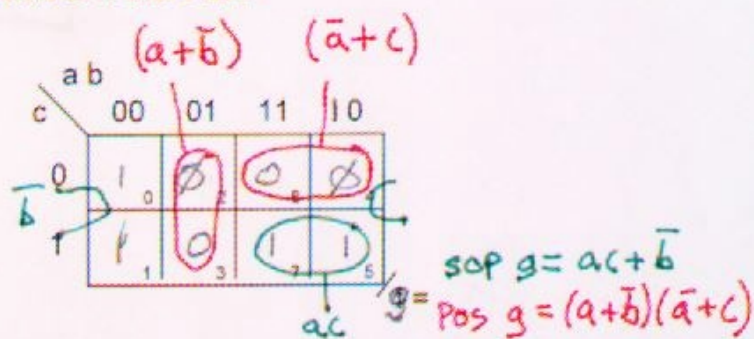 (a+b̄) (ā+c)
a b
c 00 01 11 10
0 1 0 ∅ 2 0 6 ∅
b̄
1 1 1 0 3 1 7 1 5
ac
g =
sop g = ac + b̄
pos g = (a+b̄)(ā+c)